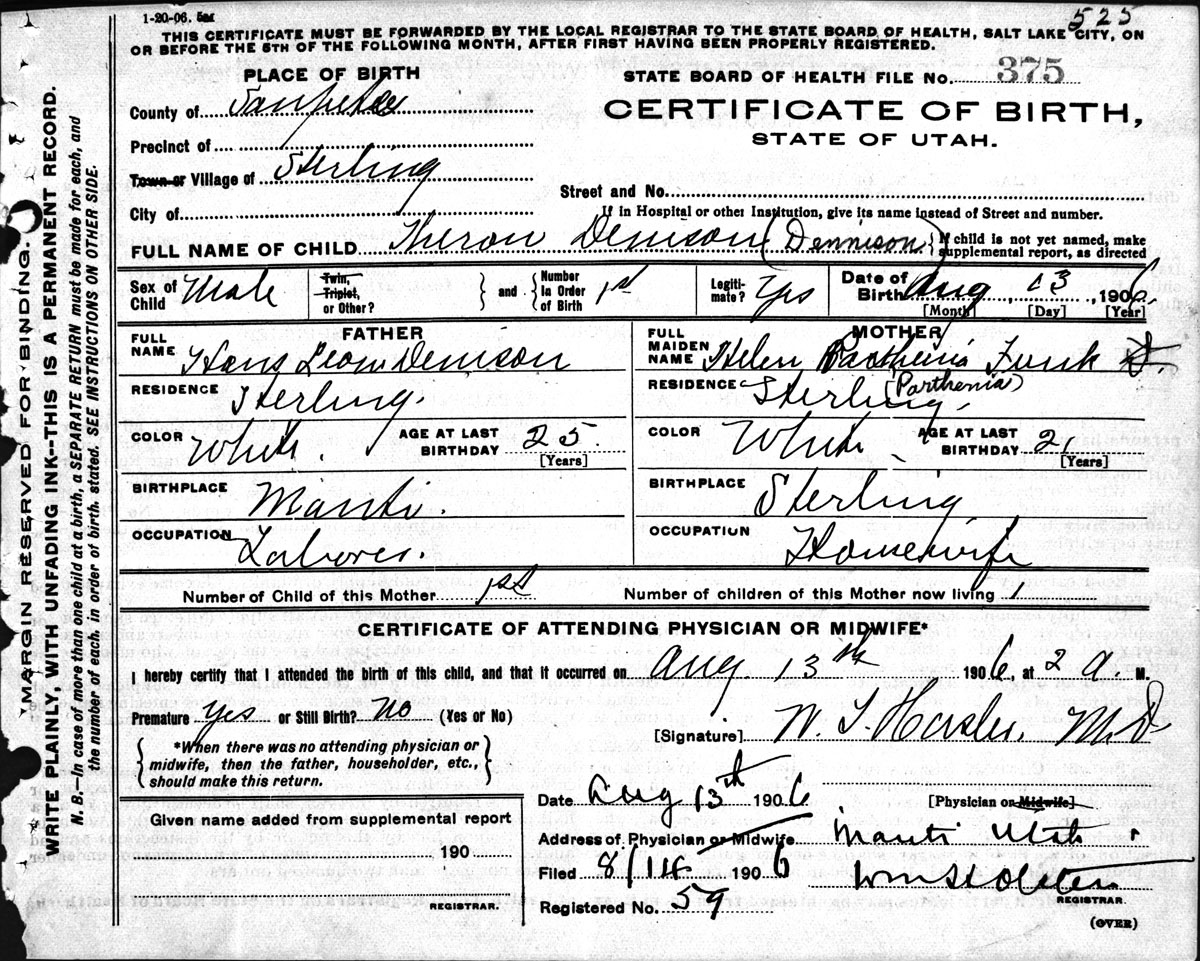 1-20-06. 5M
525
THIS CERTIFICATE MUST BE FORWARDED BY THE LOCAL REGISTRAR TO THE STATE BOARD OF HEALTH, SALT LAKE CITY, ON
OR BEFORE THE 5TH OF THE FOLLOWING MONTH, AFTER FIRST HAVING BEEN PROPERLY REGISTERED.
PLACE OF BIRTH
STATE BOARD OF HEALTH FILE No. 375
County of Sanpete
CERTIFICATE OF BIRTH,
STATE OF UTAH.
Precinct of
Town or Village of Sterling
Street and No.
City of
If in Hospital or other Institution, give its name instead of Street and number.
FULL NAME OF CHILD Theron Denison (Dennison) {If child is not yet named, make
supplemental report, as directed
Sex of Child Male
Twin, Triplet, or Other? } and { Number in Order of Birth 1st
Legiti-mate? Yes
Date of Birth Aug, 13, 1906.
[Month] [Day] [Year]
FATHER
FULL NAME Hans Leom Denison
RESIDENCE Sterling.
COLOR White. AGE AT LAST BIRTHDAY 25. [Years]
BIRTHPLACE Manti.
OCCUPATION Laborer.
MOTHER
FULL MAIDEN NAME Helen Parthenia Funk
RESIDENCE Sterling. (Parthenia)
COLOR White. AGE AT LAST BIRTHDAY 21 [Years]
BIRTHPLACE Sterling
OCCUPATION Housewife
Number of Child of this Mother 1st Number of children of this Mother now living 1
CERTIFICATE OF ATTENDING PHYSICIAN OR MIDWIFE*
I hereby certify that I attended the birth of this child, and that it occurred on Aug. 13th 1906, at 2 a. M.
Premature yes or Still Birth? no (Yes or No)
[Signature] M.D.
{*When there was no attending physician or
midwife, then the father, householder, etc.,
should make this return.}
Date Aug 13th 1906
[Physician or Midwife]
Address of Physician or Midwife Manti Utah.
Filed 8/14 1906
REGISTRAR.
Registered No. 59
(OVER)
Given name added from supplemental report
190
REGISTRAR.
MARGIN RESERVED FOR BINDING.
WRITE PLAINLY, WITH UNFADING INK--THIS IS A PERMANENT RECORD.
N. B.—In case of more than one child at a birth, a SEPARATE RETURN must be made for each, and
the number of each, in order of birth, stated. SEE INSTRUCTIONS ON OTHER SIDE.